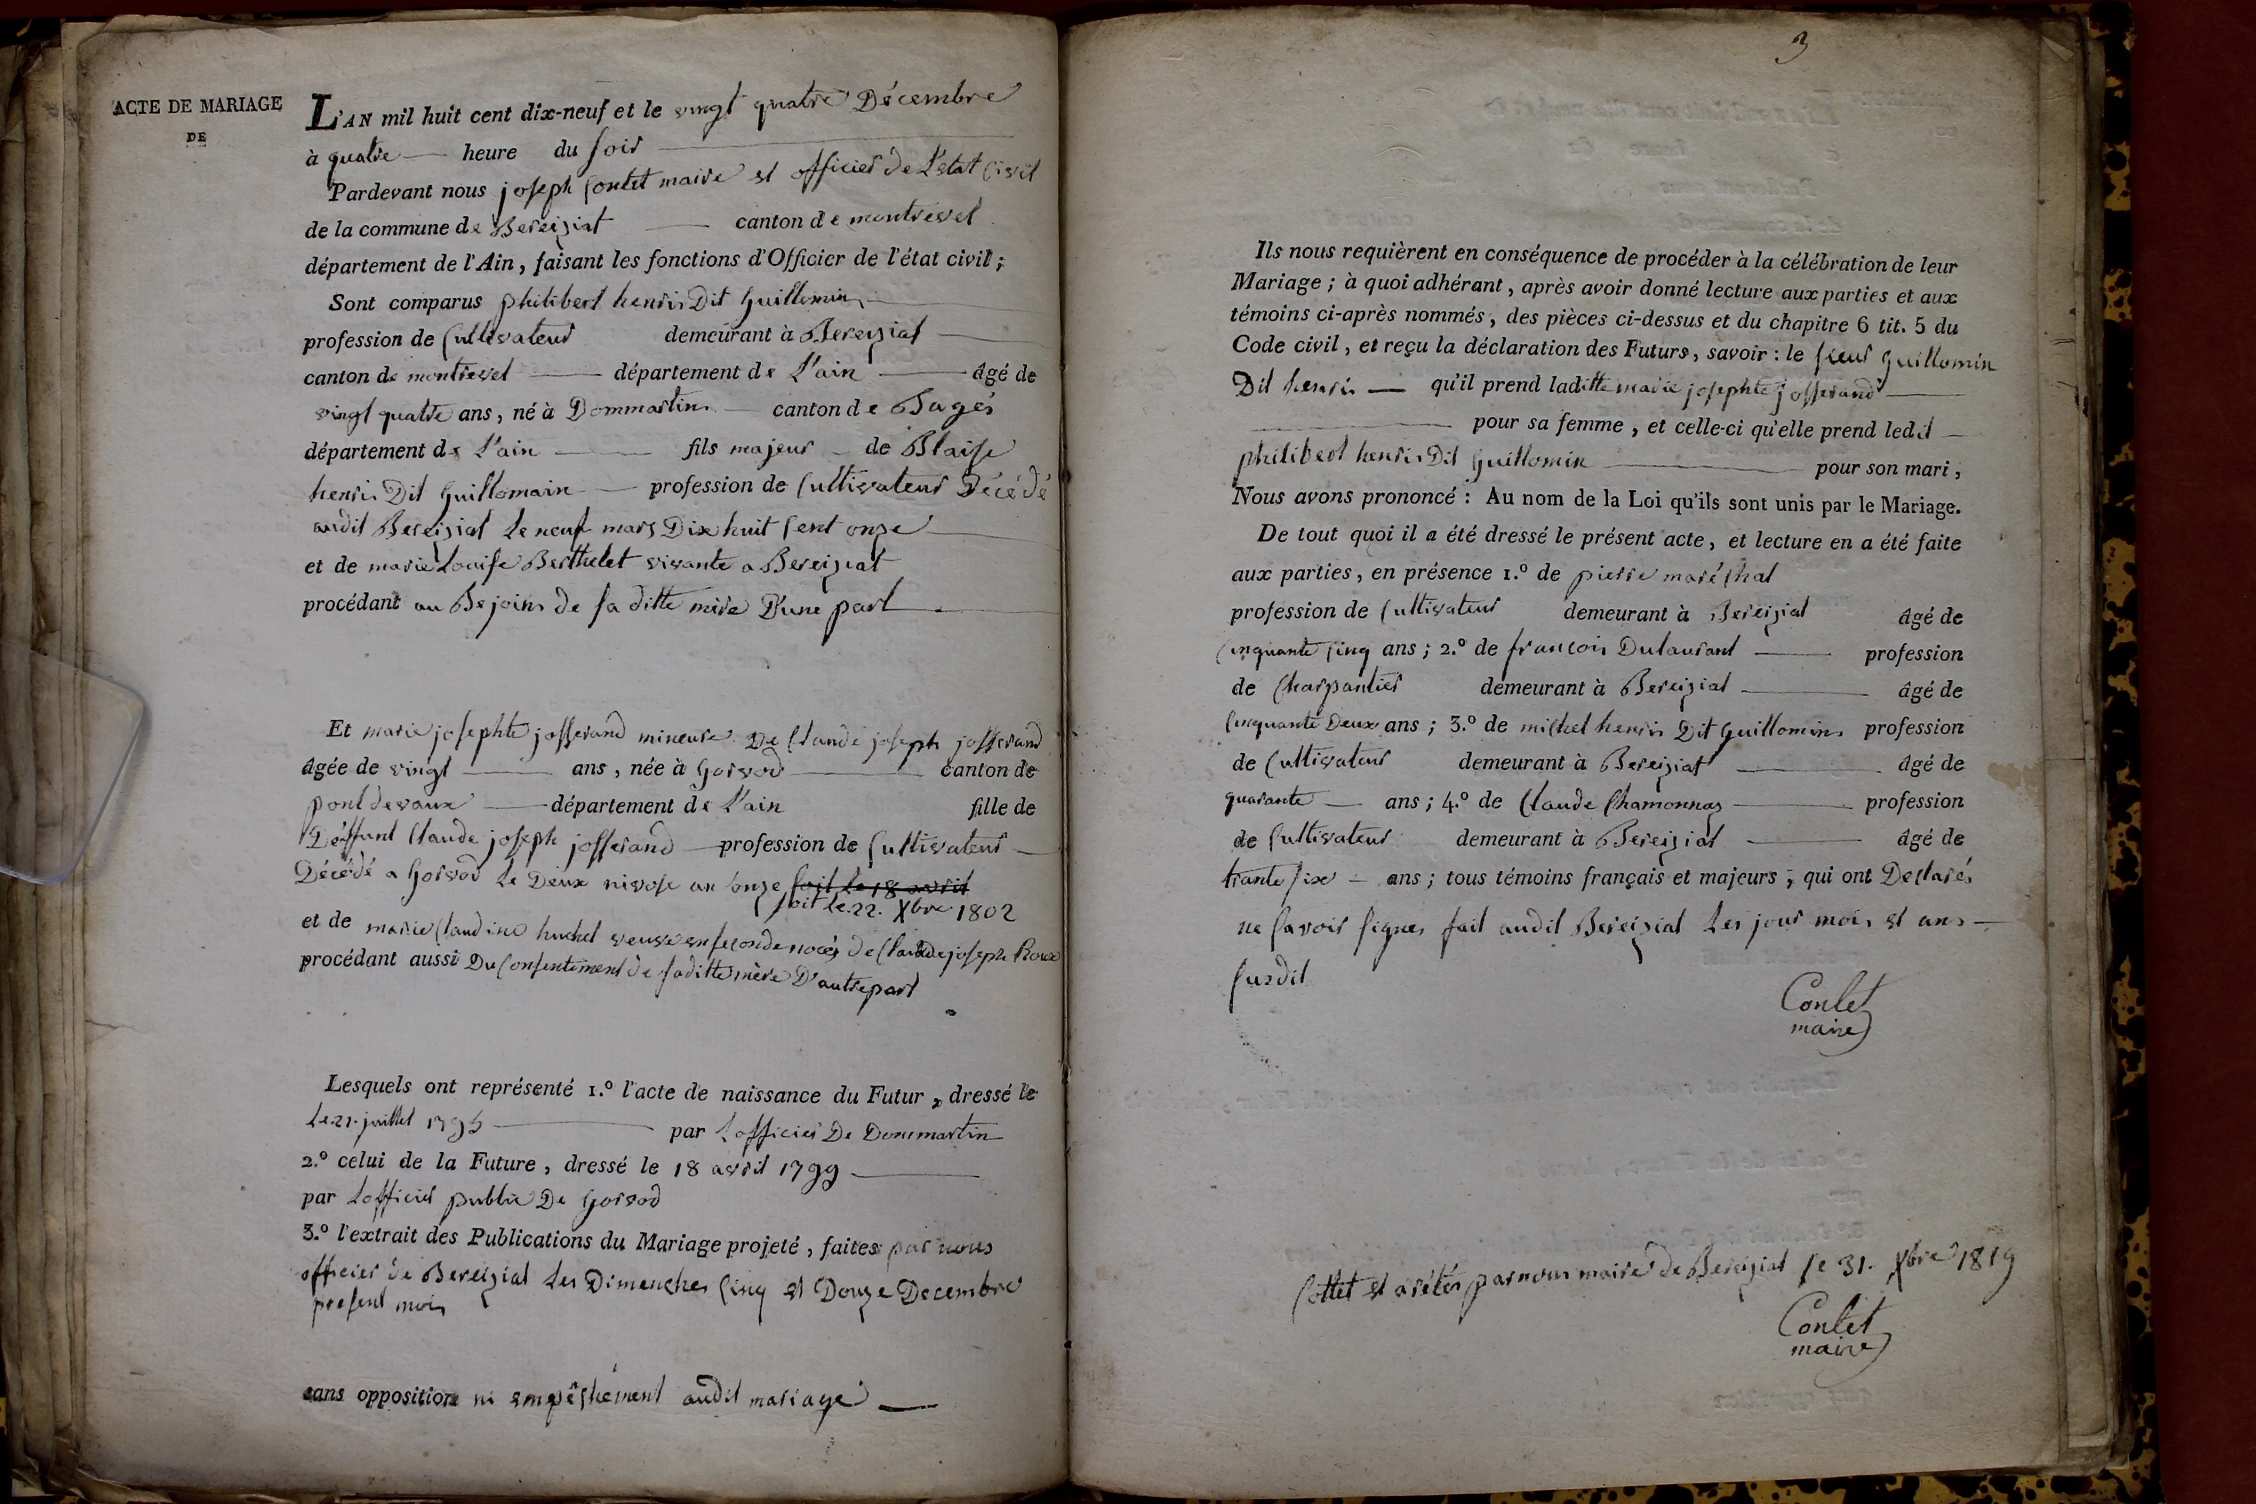 ACTE DE MARIAGE
DE
L'AN mil huit cent dix-neuf et le vingt quatre Décembre
à quatre heure du soir
Pardevant nous joseph Contet maire et officier de L'état Civil
de la commune de Bereiziat canton de montrevel
département de l'Ain, faisant les fonctions d'Officier de l'état civil;
Sont comparus philibert henri Dit Guillomin
profession de Cultivateur demeurant à Bereiziat
canton de montrevel département de L'ain âgé de
vingt quatre ans, né à Dommartin canton de Bagés
département de L'ain fils majeur de Blaise
henri Dit Guillomain profession de Cultivateur Décédé
audit Bereiziat Le neuf mars Dix huit Cent onze
et de marie Louise Berthelet vivante a Bereiziat
procédant au Besoins de sa ditte mère D'une part
Et marie josephte josserand mineure De Claude joseph josserand
âgée de vingt ans, née à Gorvod canton de
pontdevaux département de L'ain fille de
Déffunt Claude joseph josserand profession de Cultivateur
Décédé a Gorvod Le Deux nivose an onze soit le 18 avril
soit le 22. Xbre 1802
et de marie Claudine huchet veuve en seconde noces de Claude joseph Roux
procédant aussi Du Consentement de saditte mère D'autre part
Lesquels ont représenté 1.° l'acte de naissance du Futur, dressé le
Le 21. juillet 1795 par Lofficier De Dommartin
2.° celui de la Future, dressé le 18 avril 1799
par Lofficier public De Gorvod
3.° l'extrait des Publications du Mariage projeté, faites par nous
officier de Bereiziat Les Dimenches Cinq et Douze Decembre
present mois
sans opposition ni empêchement audit mariage
3
Ils nous requièrent en conséquence de procéder à la célébration de leur
Mariage; à quoi adhérant, après avoir donné lecture aux parties et aux
témoins ci-après nommés, des pièces ci-dessus et du chapitre 6 tit. 5 du
Code civil, et reçu la déclaration des Futurs, savoir: le sieur Guillomin
Dit henri qu'il prend laditte marie josephte josserand
pour sa femme, et celle-ci qu'elle prend ledit
philibert henri Dit Guillomin pour son mari,
Nous avons prononcé: Au nom de la Loi qu'ils sont unis par le Mariage.
De tout quoi il a été dressé le présent acte, et lecture en a été faite
aux parties, en présence 1.° de pierre maréchal
profession de Cultivateur demeurant à Bereiziat âgé de
Cinquante Cinq ans; 2.° de francois Dulaurant profession
de Charpantier demeurant à Bereiziat âgé de
Cinquante Deux ans; 3.° de michel henri Dit Guillomin profession
de Cultivateur demeurant à Bereiziat âgé de
quarante ans; 4.° de Claude Chamonnaz profession
de Cultivateur demeurant à Bereiziat âgé de
trante six ans; tous témoins français et majeurs; qui ont Declarés
ne savoir signer fait audit Bereiziat Les jour mois et ans
susdit
Contet
maire
Cottet et arétés par nous maire de Bereiziat le 31. Xbre 1819
Contet
maire